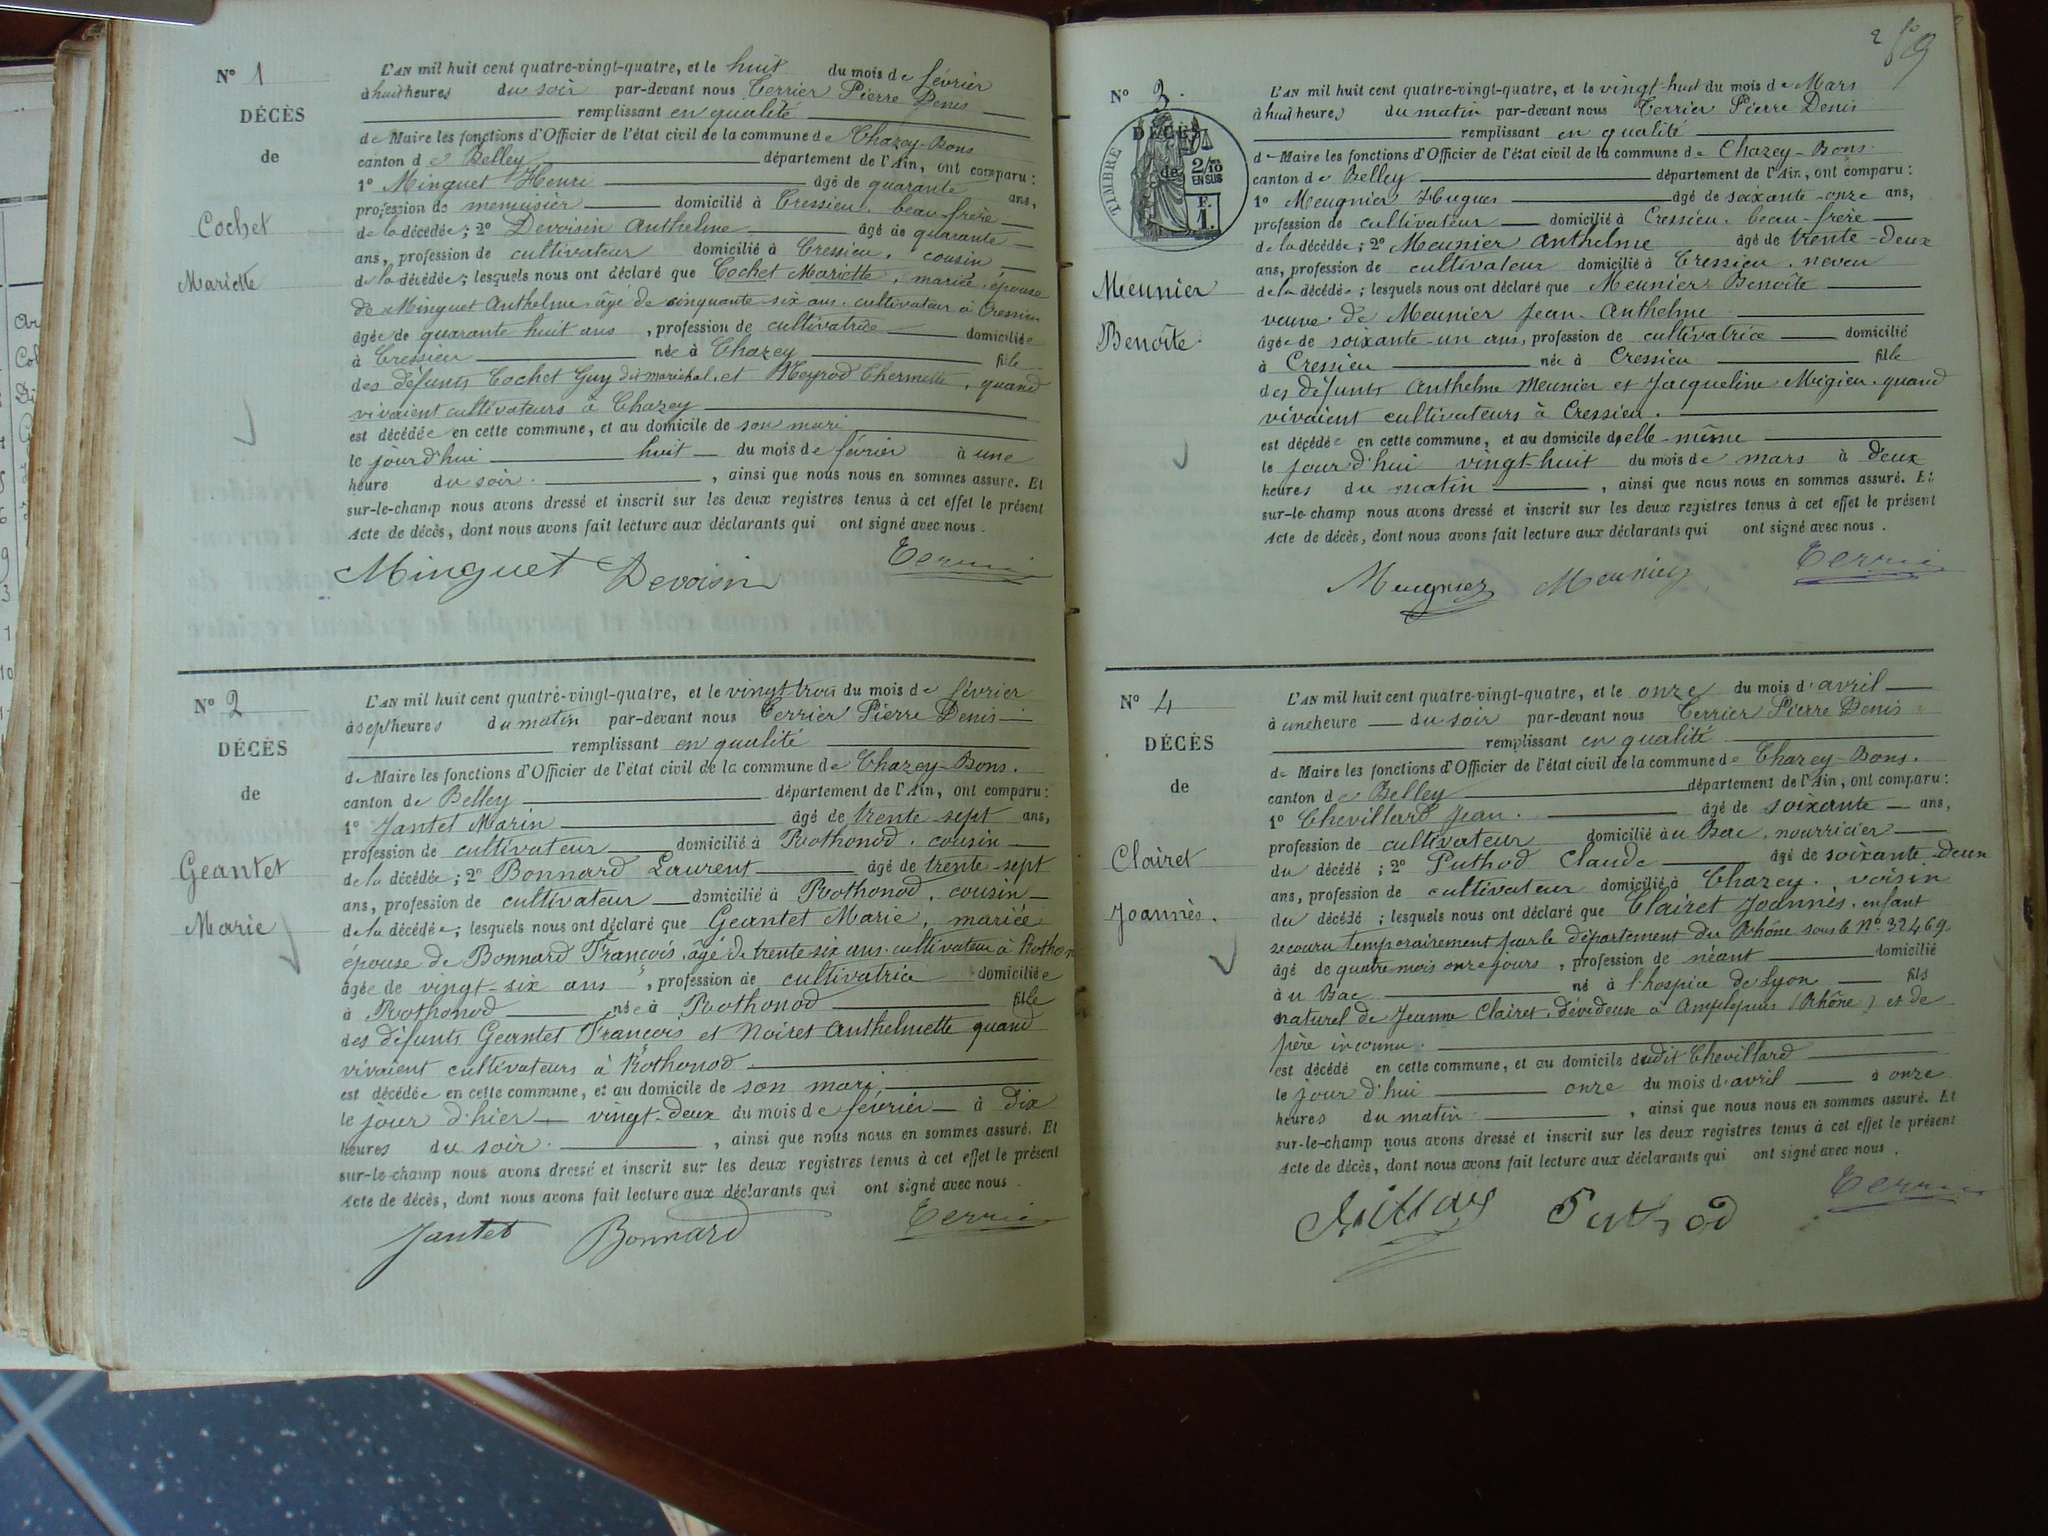 N° 1
DÉCÈS
de
Cochet
Mariette
L'AN mil huit cent quatre-vingt-quatre, et le huit du mois de février
à huit heures du soir par-devant nous Terrier Pierre Denis
remplissant en qualité
de Maire les fonctions d'Officier de l'état civil de la commune de Chazey-Bons
canton de Belley département de l'Ain, ont comparu :
1° Minguet Henri âgé de quarante ans,
profession de menuisier domicilié à Cressieu, beau-frère
de la décédée ; 2° Devoisin Anthelme âgé de quarante
ans, profession de cultivateur domicilié à Cressieu, cousin
de la décédée ; lesquels nous ont déclaré que Cochet Mariette, mariée, épouse
de Minguet Anthelme, âgé de cinquante-six ans, cultivateur à Cressieu
âgée de quarante huit ans, profession de cultivatrice domiciliée
à Cressieu née à Chazey fille
des défunts Cochet Guy dit maréchal, et Meyrod Thermette, quand
vivaient cultivateurs à Chazey
est décédée en cette commune, et au domicile de son mari
le jourd'hui huit du mois de février à une
heure du soir. , ainsi que nous nous en sommes assuré. Et
sur-le-champ nous avons dressé et inscrit sur les deux registres tenus à cet effet le présent
Acte de décès, dont nous avons fait lecture aux déclarants qui ont signé avec nous.
Minguet Devoisin Terrier
N° 2
DÉCÈS
de
Geantet
Marie
L'AN mil huit cent quatre-vingt-quatre, et le vingt trois du mois de février
à sept heures du matin par-devant nous Terrier Pierre Denis
remplissant en qualité
de Maire les fonctions d'Officier de l'état civil de la commune de Chazey-Bons.
canton de Belley département de l'Ain, ont comparu :
1° Jantet Marin âgé de trente-sept ans,
profession de cultivateur domicilié à Rothonod, cousin
de la décédée ; 2° Bonnard Laurent âgé de trente-sept
ans, profession de cultivateur domicilié à Rothonod, cousin
de la décédée ; lesquels nous ont déclaré que Geantet Marie, mariée
épouse de Bonnard François, âgé de trente six ans, cultivateur à Rothon
âgée de vingt-six ans, profession de cultivatrice domiciliée
à Rothonod née à Rothonod fille
des défunts Geantet François et Noiret Anthelmette quand
vivaient cultivateurs à Rothonod
est décédée en cette commune, et au domicile de son mari
le jour d'hier vingt-deux du mois de février à dix
heures du soir. , ainsi que nous nous en sommes assuré. Et
sur-le-champ nous avons dressé et inscrit sur les deux registres tenus à cet effet le présent
Acte de décès, dont nous avons fait lecture aux déclarants qui ont signé avec nous.
Jantet Bonnard Terrier
N° 3.
DÉCÈS
de
TIMBRE
2/10
EN SUS
F.
1.
Meunier
Benoîte.
L'AN mil huit cent quatre-vingt-quatre, et le vingt-huit du mois de Mars
à huit heures du matin par-devant nous Terrier Pierre Denis
remplissant en qualité
de Maire les fonctions d'Officier de l'état civil de la commune de Chazey-Bons.
canton de Belley département de l'Ain, ont comparu :
1° Meugnier Hugues âgé de soixante-onze ans,
profession de cultivateur domicilié à Cressieu, beau-frère
de la décédée ; 2° Meunier Anthelme âgé de trente-deux
ans, profession de cultivateur domicilié à Cressieu, neveu
de la décédée ; lesquels nous ont déclaré que Meunier Benoîte
veuve de Meunier Jean-Anthelme
âgée de soixante-un ans, profession de cultivatrice domicilié
à Cressieu née à Cressieu fille
des défunts Anthelme Meunier et Jacqueline Migieu, quand
vivaient cultivateurs à Cressieu.
est décédée en cette commune, et au domicile d'elle-même
le jour d'hui vingt-huit du mois de mars à deux
heures du matin , ainsi que nous nous en sommes assuré. Et
sur-le-champ nous avons dressé et inscrit sur les deux registres tenus à cet effet le présent
Acte de décès, dont nous avons fait lecture aux déclarants qui ont signé avec nous.
Meugnier Meunier Terrier
N° 4
DÉCÈS
de
Clairet
Joannès.
L'AN mil huit cent quatre-vingt-quatre, et le onze du mois d'avril
à une heure du soir par-devant nous Terrier Pierre Denis
remplissant en qualité
de Maire les fonctions d'Officier de l'état civil de la commune de Chazey-Bons.
canton de Belley département de l'Ain, ont comparu :
1° Chevillard Jean. âgé de soixante ans,
profession de cultivateur domicilié au Bac, nourricier
du décédé ; 2° Puthod Claude âgé de soixante-deux
ans, profession de cultivateur domicilié à Chazey, voisin
du décédé ; lesquels nous ont déclaré que Clairet Joannès, enfant
secouru temporairement par le département du Rhône sous le N° 32469.
âgé de quatre mois onze jours, profession de néant domicilié
au Bac né à l'hospice de Lyon fils
naturel de Jeanne Clairet, dévideuse à Amplepuis (Rhône) et de
père inconnu.
est décédé en cette commune, et au domicile dudit Chevillard
le jour d'hui onze du mois d'avril à onze
heures du matin. , ainsi que nous nous en sommes assuré. Et
sur-le-champ nous avons dressé et inscrit sur les deux registres tenus à cet effet le présent
Acte de décès, dont nous avons fait lecture aux déclarants qui ont signé avec nous.
Puthod Terrier